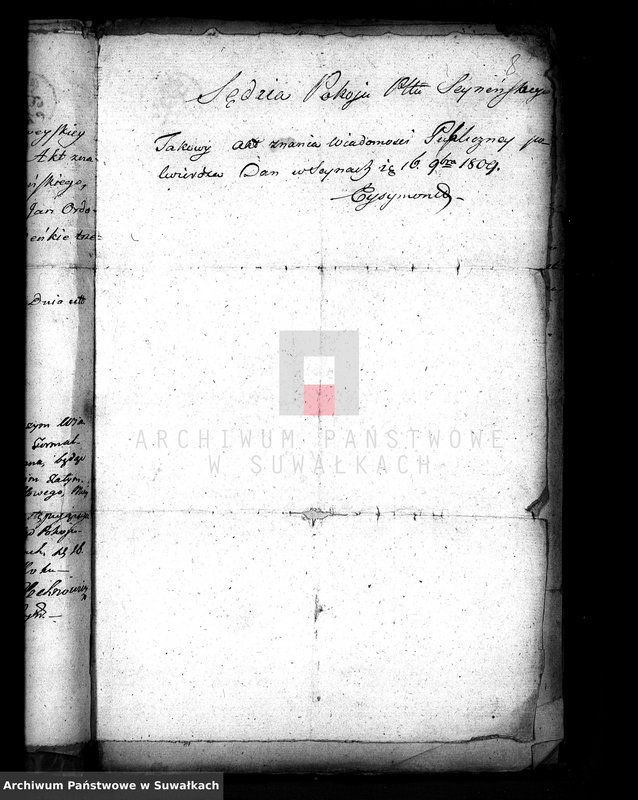 8
Sędzia Pokoju Pttu Seyneńskiego
Takowy akt znania wiadomości Publiczney po
twierdza Dan w Seynach
16. 9bra 1809.
Eysymontt
wieyskiey
Akt zna
ńskiego,
Jan Ordo-
eńkie trze-
Dnia
szym Wia
Formal-
będąc
im Zatym.
Pokoju
18
Roku
ARCHIWUM PAŃSTWOWE
W SUWAŁKACH
Archiwum Państwowe w Suwałkach